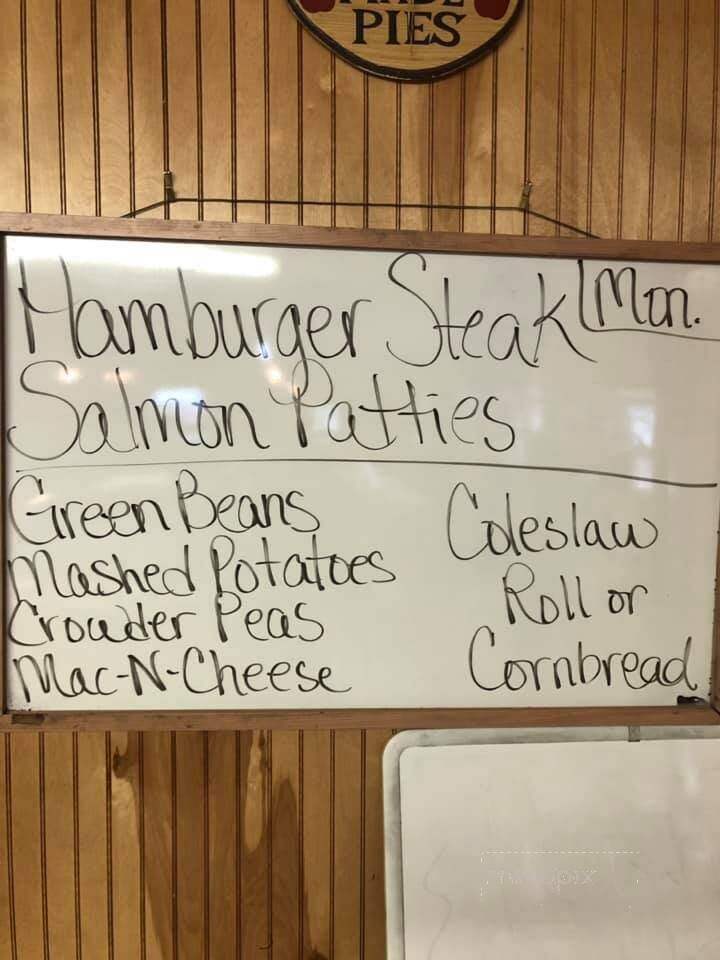 PIES
Hamburger Steak
Mon.
Salmon Patties
Green Beans
Mashed Potatoes
Crowder Peas
Mac-N-Cheese
Coleslaw
Roll or
Cornbread